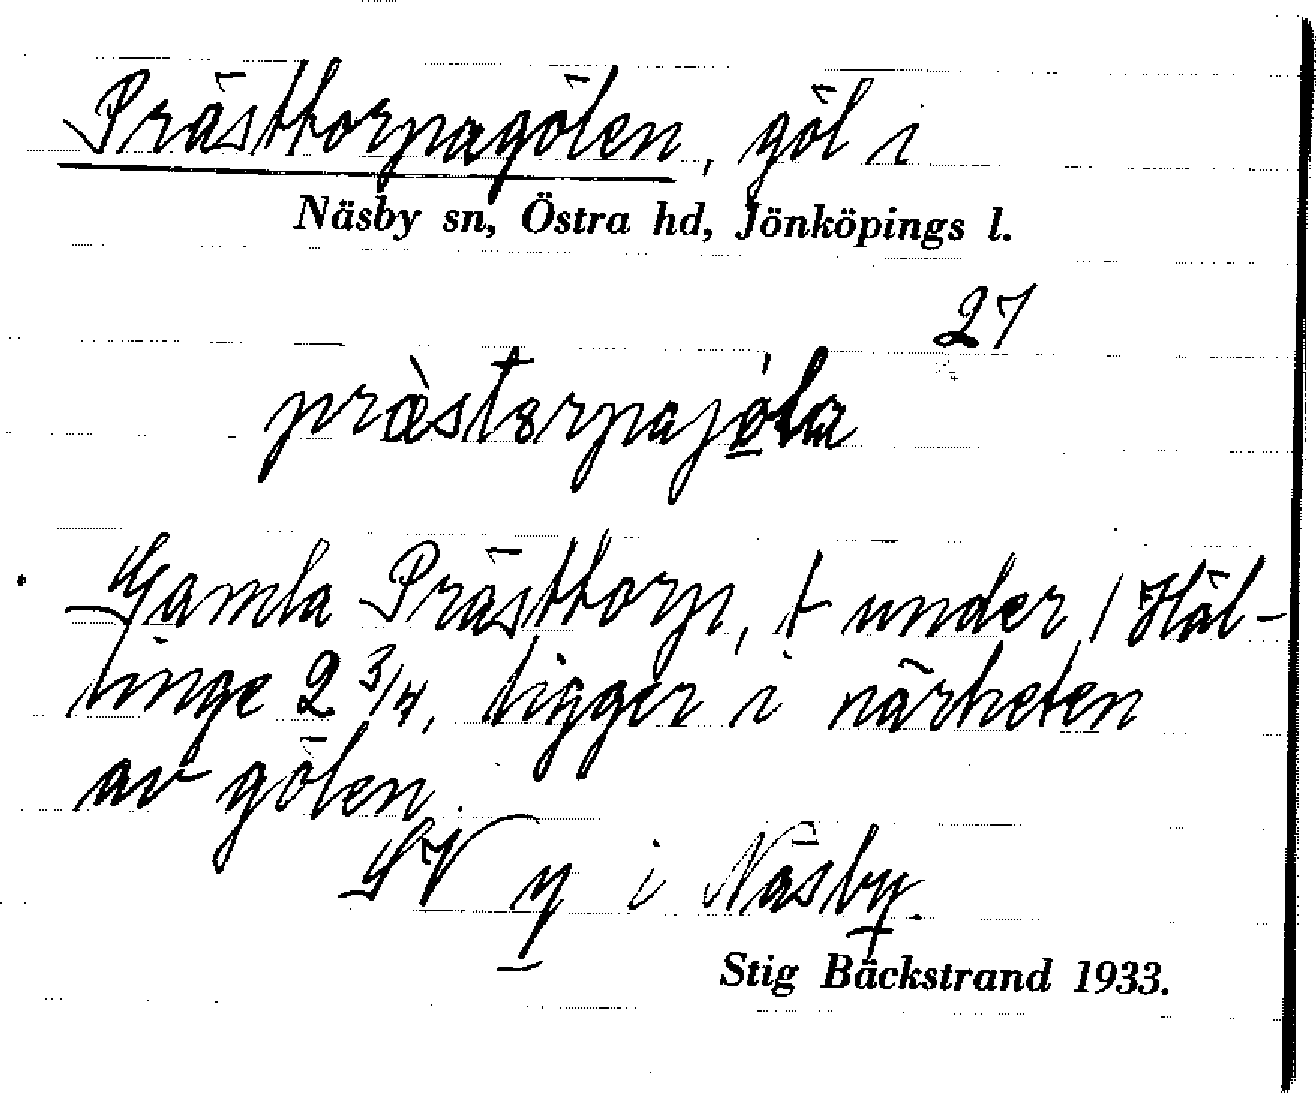 Prästtorpagölen, göl i
Näsby sn, Östra hd, Jönköpings l.
27
Gamla Prästtorp, t under Häl-
linge 2 3/4, ligger i närheten
av gölen.
SV y i Näsby.
Stig Bäckstrand 1933.